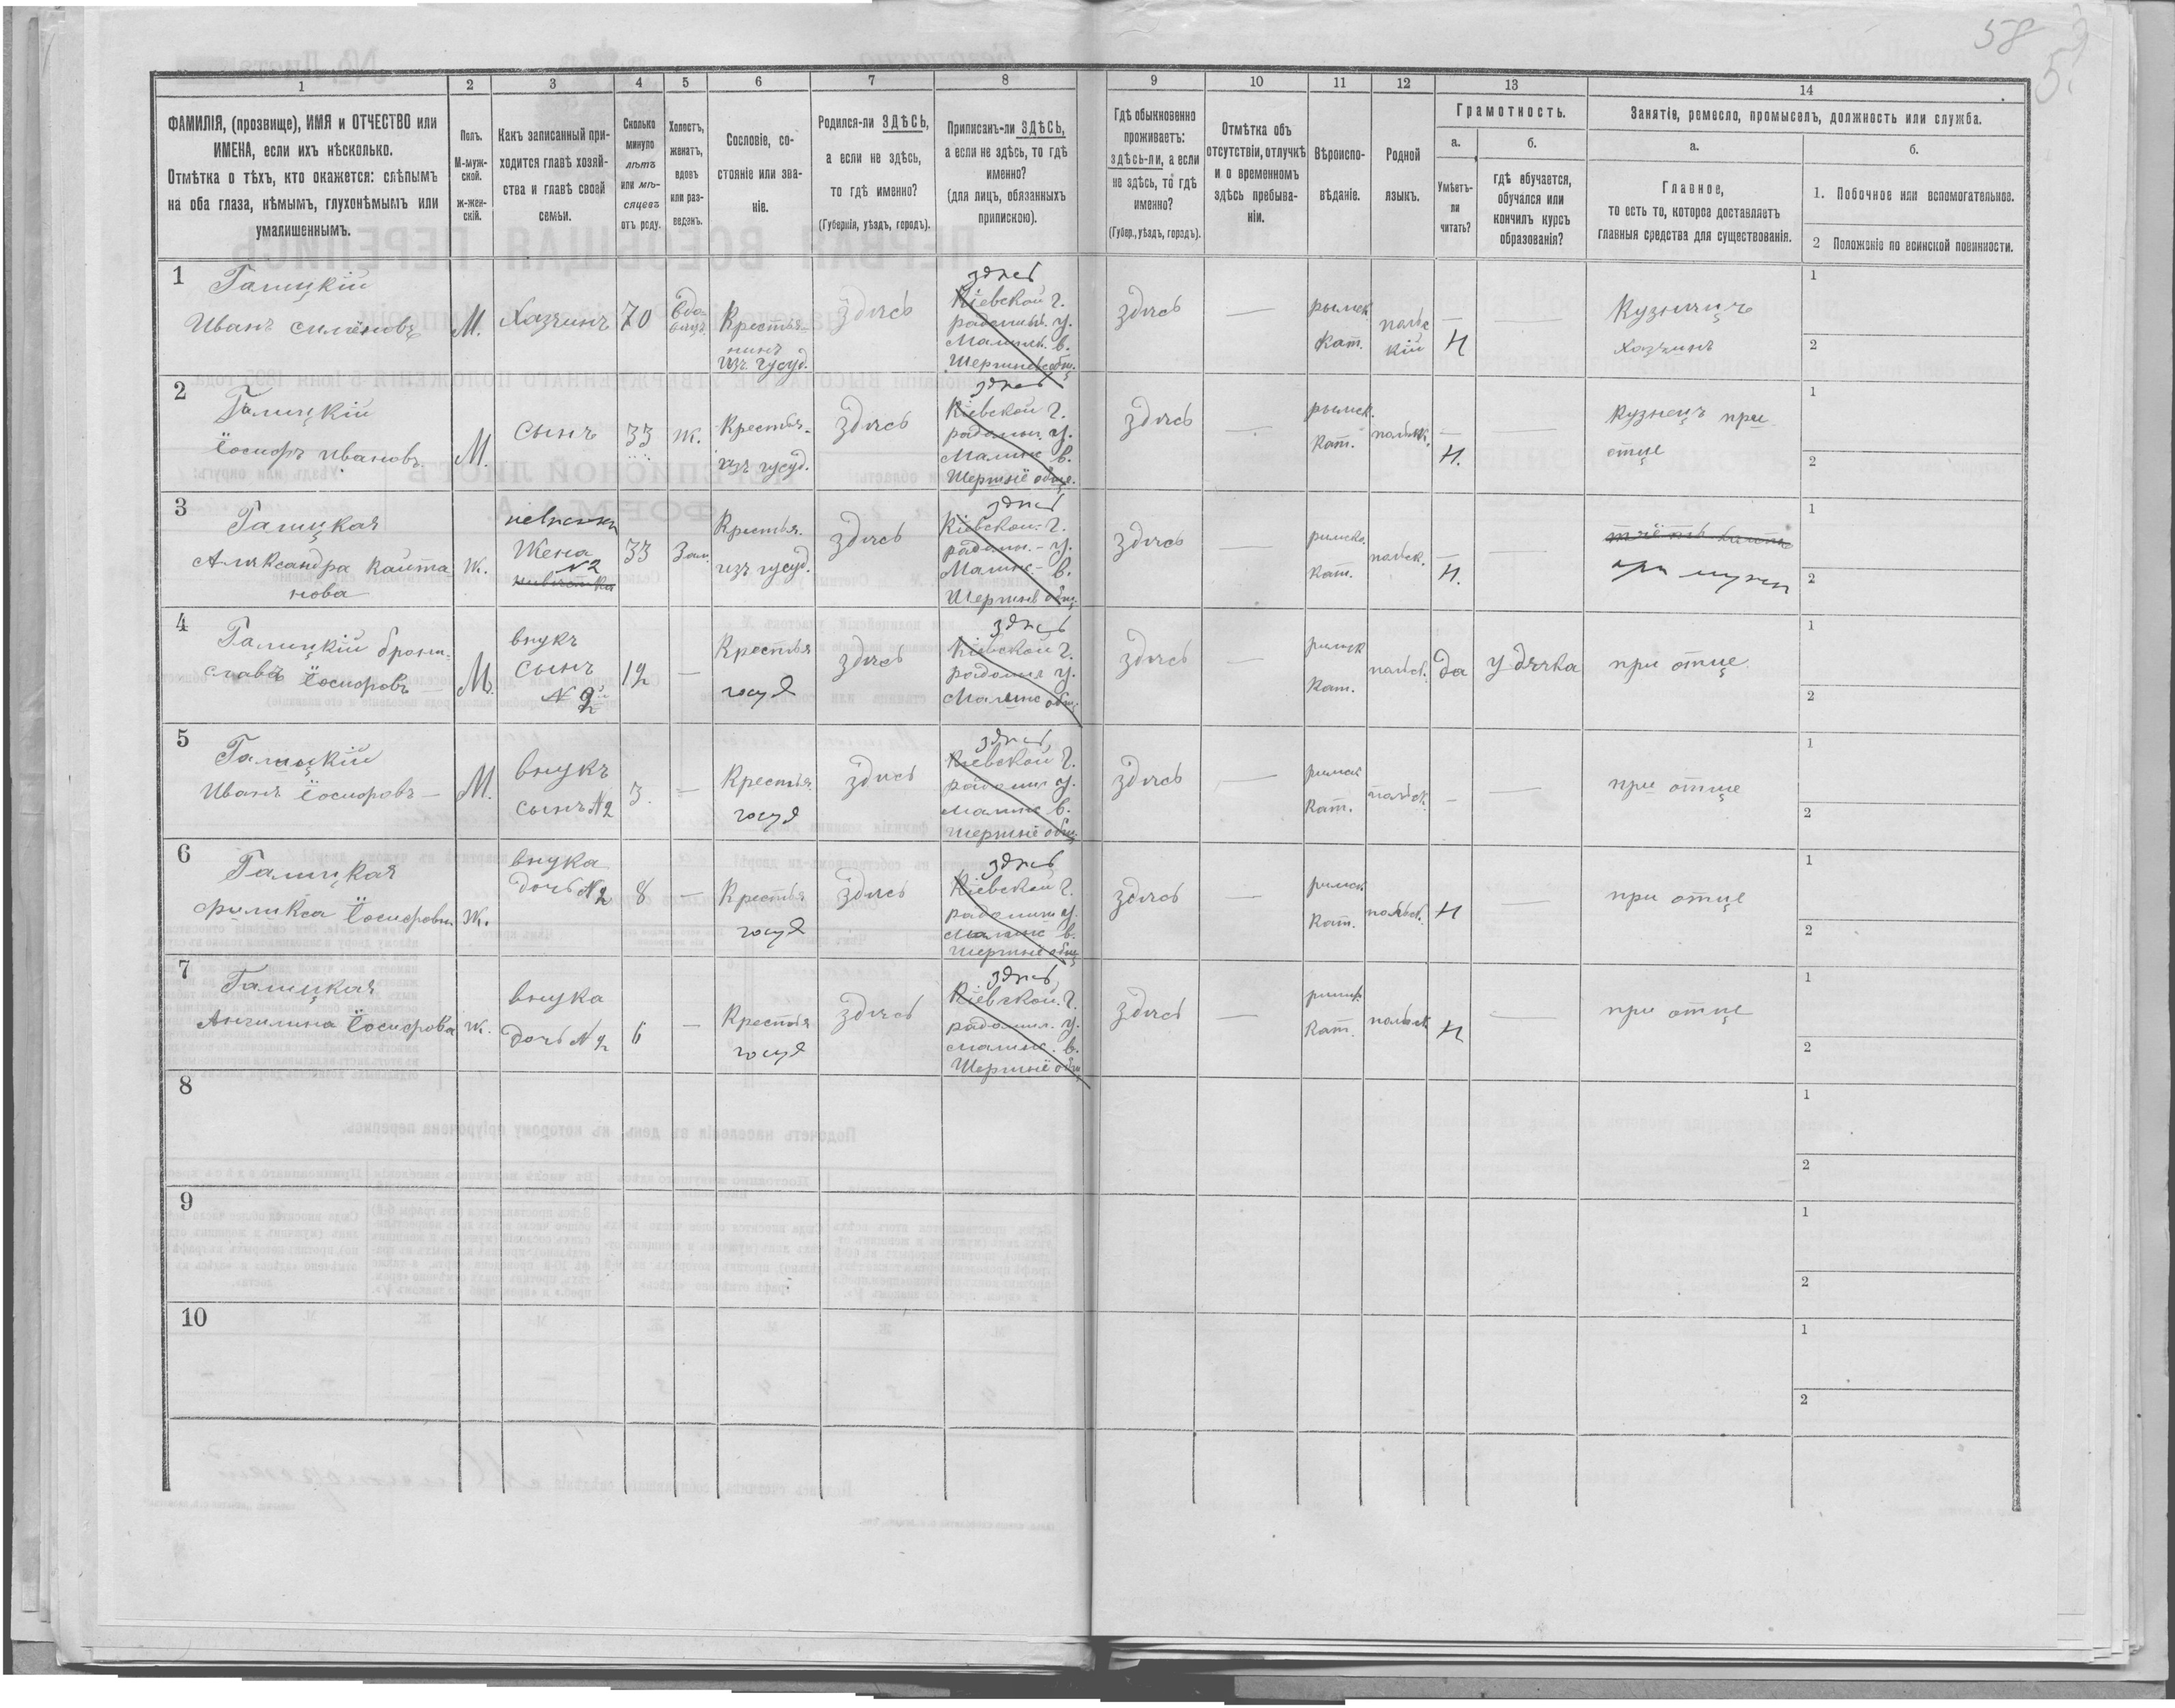 58
1
2
3
4
5
6
7
8
9
10
11
12
13
14
ФАМИЛІЯ, (прозвище), ИМЯ и ОТЧЕСТВО или
ИМЕНА, если ихъ нѣсколько.
Отмѣтка о тѣхъ, кто окажется: слѣпымъ
на оба глаза, нѣмымъ, глухонѣмымъ или
умалишеннымъ.
Полъ.
М-муж-
ской.
ж-жен-
скій.
Какъ записанный при-
ходится главѣ хозяй-
ства и главѣ своей
семьи.
Сколько
минуло
лѣтъ
или мѣ-
сяцевъ
отъ роду.
Холостъ,
женатъ,
вдовъ
или раз-
веденъ.
Сословіе, со-
стояніе или зва-
ніе.
Родился-ли ЗДѢСЬ,
а если не здѣсь,
то гдѣ именно?
(Губернія, уѣздъ, городъ).
Приписанъ-ли ЗДѢСЬ,
а если не здѣсь, то гдѣ
именно?
(для лицъ, обязанныхъ
припискою).
Гдѣ обыкновенно
проживаетъ:
здѣсь-ли, а если
не здѣсь, то гдѣ
именно?
(Губер., уѣздъ, городъ).
Отмѣтка объ
отсутствіи, отлучкѣ
и о временномъ
здѣсь пребыва-
ніи.
Вѣроиспо-
вѣданіе.
Родной
языкъ.
Грамотность.
а.
Умѣетъ-
ли
читать?
б.
гдѣ обучается,
обучался или
кончилъ курсъ
образованія?
Занятіе, ремесло, промыселъ, должность или служба.
а.
Главное,
то есть то, которое доставляетъ
главныя средства для существованія.
б.
1. Побочное или вспомогательное.
2 Положеніе по воинской повинности.
1
Галицкій
Иванъ
М.
Хазяинъ
70
Вдо-
вецъ
Крестья-
нинъ
изъ гусуд.
здѣсь
здѣсь
Кіевской г.
у.
в.
здѣсь
—
рымск
Кат.
польс
кій
—
Н
—
Хазяинъ
1
2
2
Галицкій
Іосифъ Ивановъ
М.
Сынъ
33
ж.
Крестья-
изъ гусуд.
здѣсь
здѣсь
Кіевской г.
у.
Малинс в.
здѣсь
—
рымск.
Кат.
польск.
—
Н.
—
Кузнецъ при
отце
1
2
3
Галицкая
Александра Каита
нова
ж.
невѣстка
Жена
N2
33
Зам.
Крестья.
изъ гусуд.
здѣсь
здѣсь
Кіевской г.
у.
Малинс в.
здѣсь
—
римско
Кат.
польск.
—
Н.
—
при мужи
1
2
4
Галицкій брони-
славъ Іосифовъ —
М.
внукъ
сынъ
N 2
12
—
Крестья
госуд
здѣсь
здѣсь
Кіевской г.
у.
Малинс общ.
здѣсь
—
римск
Кат.
польск.
да
у дячка
при отце
1
2
5
Галицкій
Иванъ Іосифовъ —
М.
внукъ
сынъ N2
3.
—
Крестья
госуд
здѣсь
здѣсь
Кіевской г.
у.
Малинс в.
здѣсь
—
римск
Кат.
польск.
—
—
при отце
1
2
6
Галицкая
филикса Іосифовн
Ж.
внука
дочь N2
8
—
Крестья
госуд
здѣсь
здѣсь
Кіевской г.
у.
Малинс в.
здѣсь
—
римск
Кат.
польск.
Н
—
при отце
1
2
7
Галицкая
Ангилина Іосифова
ж.
внука
дочь N2
6
—
Крестья
госуд
здѣсь
здѣсь
Кіевской г.
у.
Малинс. в.
здѣсь
—
римск
Кат.
польск
Н
—
при отце
1
2
8
1
2
9
1
2
10
1
2